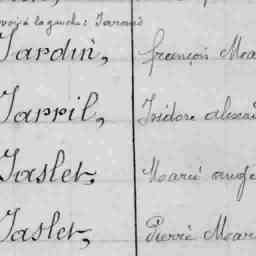 voir à la gauche: Jarou
Jardin, françois Mar
Jarril, Isidore alexan
Jaslet, Marie ange
Jaslet, Pierre Mar